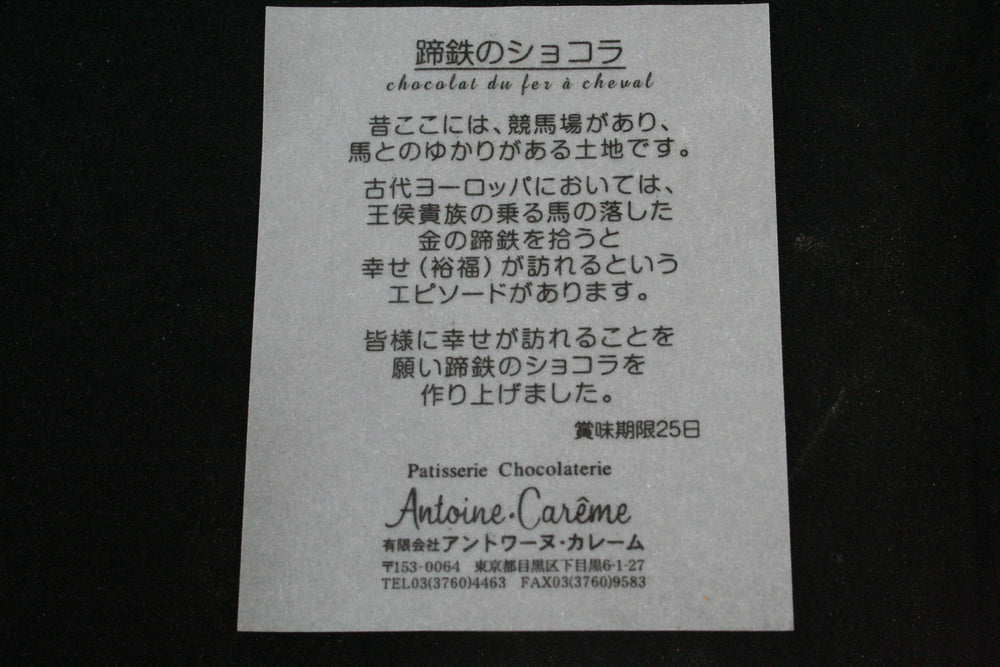 蹄鉄のショコラ
chocolat du fer à cheval
昔ここには、競馬場があり、
馬とのゆかりがある土地です。
古代ヨーロッパにおいては、
王侯貴族の乗る馬の落した
金の蹄鉄を拾うと
幸せ(裕福)が訪れるという
エピソードがあります。
皆様に幸せが訪れることを
願い蹄鉄のショコラを
作り上げました。
賞味期限25日
Patisserie Chocolaterie
Antoine・Carême
有限会社アントワーヌ・カレーム
〒153-0064 東京都目黒区下目黒6-1-27
TEL03(3760)4463 FAX03(3760)9583